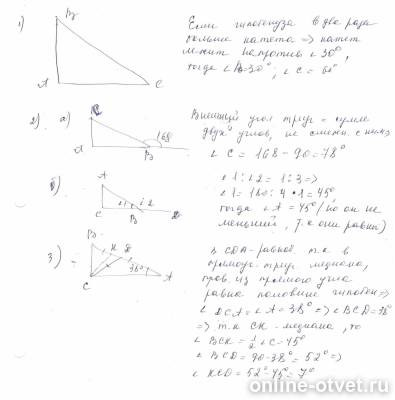 1)
В
А
С
Если гипотенуза в два раза
больше катета => катет
лежит напротив ∠ 30°,
тогда ∠ В=30°, ∠ С = 60°
2)
а)
С
168
А
В
Внешний угол треуг = сумме
двух углов, не смежн. с ним
∠ С = 168 - 90 = 78°
б)
А
С
1
2
В
∠1 : ∠2 = 1:3 =>
∠1 = 180 : 4 • 1 = 45°
тогда ∠А = 45° (но он не
меньший, т.к они равны)
3)
В
К
D
38°
С
А
CDA - равноб. т.к в
прямоуг. треуг медиана,
пров. из прямого угла
равна половине гипотен =>
∠ DCA = ∠ A = 38° => ∠ BCD =
=> т.к СК -
, то
∠ BCK = 1/2 ∠ C = 45°
∠ BCD = 90 - 38° = 52° =>
∠ KCD = 52° - 45° = 7°
online-otvet.ru